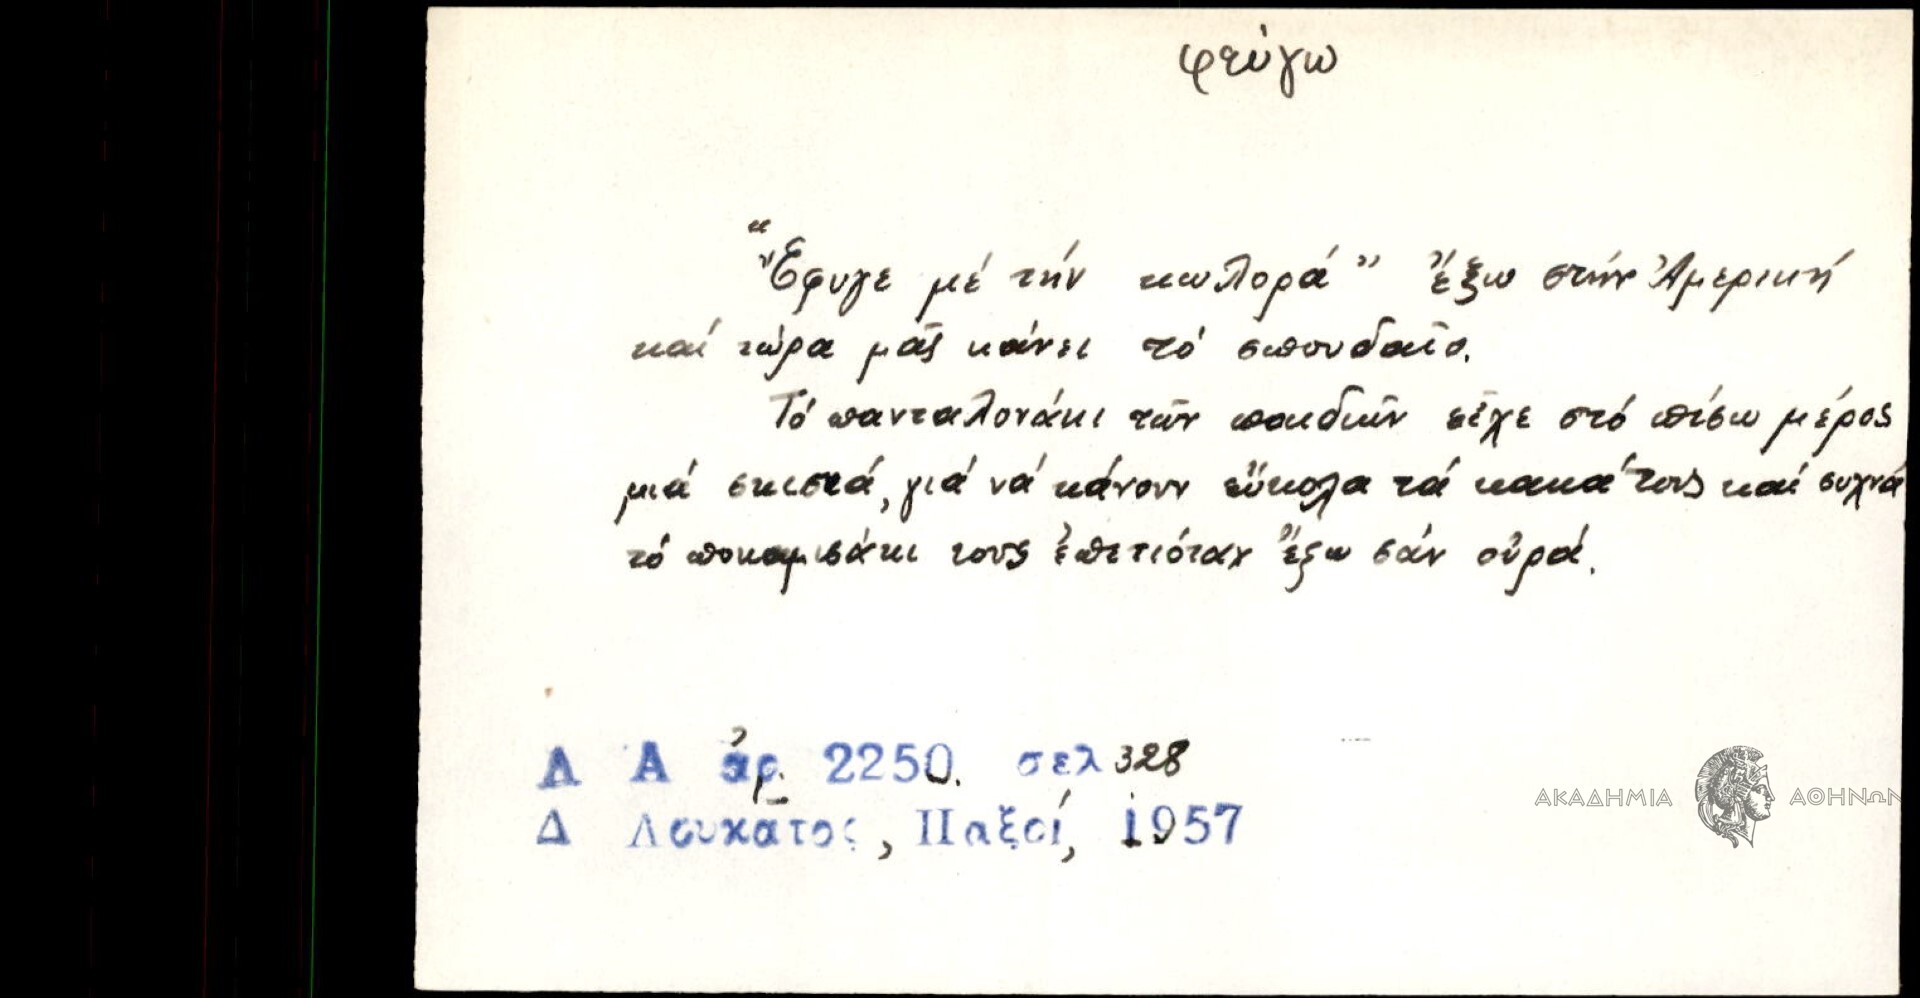 φεύγω
“Ἔφυγε μέ τήν κωλορά” ἔξω στήν Ἀμερική
καί τώρα μᾶς κάνει τό σπουδαῖο.
Τό πανταλονάκι τῶν παιδιῶν εἶχε στό πίσω μέρος
μιά σκιστά, γιά νά κάνουν εὔκολα τά κακά τους καί συχνά
τό ποκαμισάκι τους ἐπετιόταν ἔξω σάν οὐρά.
Λ Α ἀρ. 2250. σελ 328
Δ Λουκᾶτος, Παξοί, 1957
ΑΚΑΔΗΜΙΑ ΑΘΗΝΩΝ